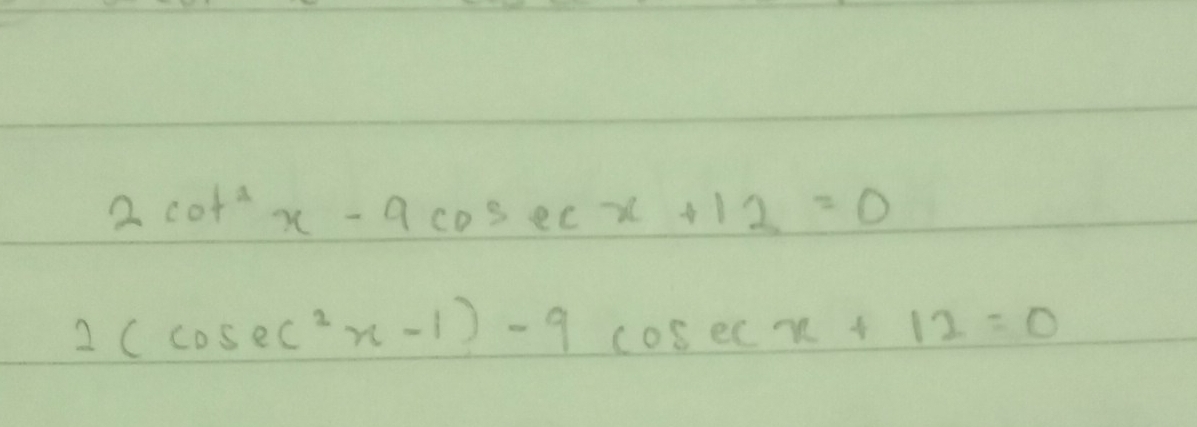 2 cot² x - 9 cosec x + 12 = 0
2 ( cosec² x - 1) - 9 cosec x + 12 = 0